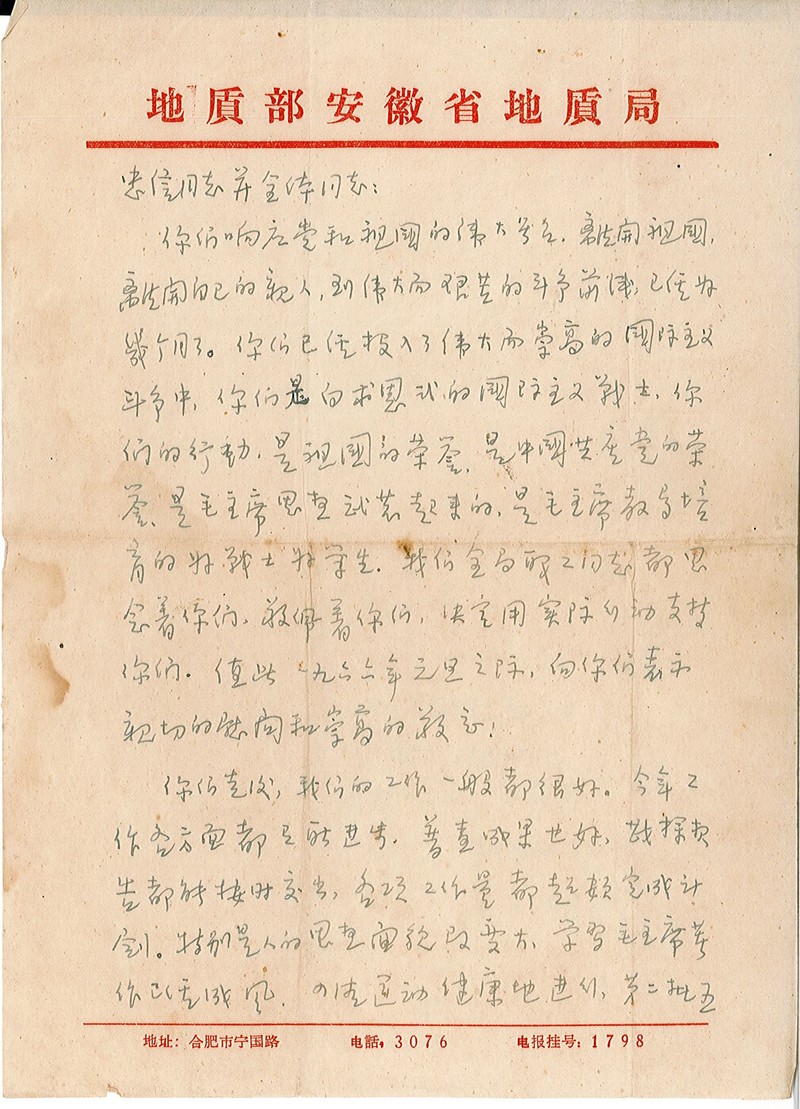 地质部安徽省地质局
忠信同志并全体同志：
你们响应党和祖國的伟大号召，离开祖國，
离开自己的親人，到伟大而艰苦的斗争前线，已经好
幾个月了。你们已经投入了伟大而崇高的國际主义
斗争中，你们是白求恩式的國际主义战士，你
们的行动，是祖國的荣誉，是中國共产党的荣
誉，是毛主席思想武装起来的，是毛主席教导培
育的好战士好学生。我们全局职工同志都思
念着你们，敬佩着你们，决定用实际行动支持
你们。值此一九六六年元旦之际，向你们表示
親切的慰问和崇高的敬意！
你们走后，我们的工作一般都很好。今年工
作各方面都有所进步，普查成果也好，勘探报
告都能按时交出，各项工作量都超额完成计
划。特别是人的思想面貌改变大，学习毛主席著
作已经成风，四清运动健康地进行，第二批五
地址：合肥市宁国路 电話：3076 电报挂号：1798